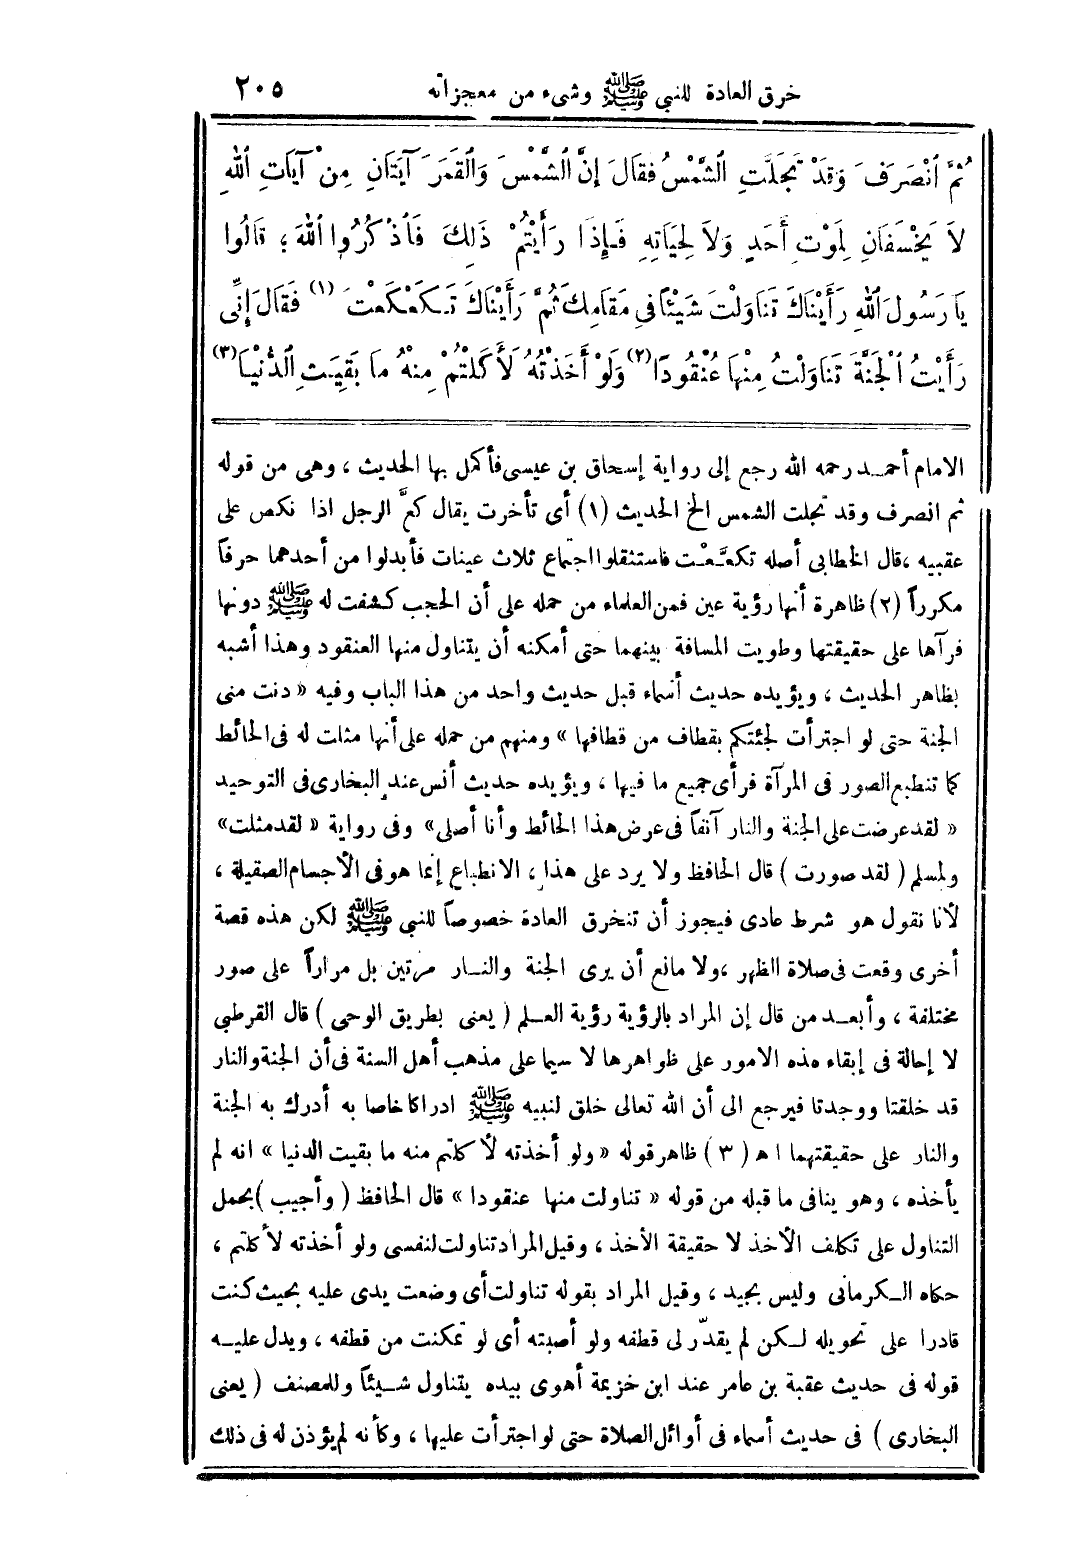 خرق العادة للنبي ﷺ وشىء من معجزاته ٢٠٥
ثُمَّ ٱنْصَرَفَ وَقَدْ تَجَلَّتِ ٱلشَّمْسُ فَقَالَ إِنَّ ٱلشَّمْسَ وَٱلْقَمَرَ آيَتَانِ مِنْ آيَاتِ ٱللهِ
لاَ يَخْسَفَانِ لِمَوْتِ أَحَدٍ وَلاَ لِحَيَاتِهِ فَإِذَا رَأَيْتُمْ ذَلِكَ فَاذْكُرُوا ٱللهَ ؛ قَالُوا
يَا رَسُولَ ٱللهِ رَأَيْنَاكَ تَنَاوَلْتَ شَيْئًا فِى مَقَامِكَ ثُمَّ رَأَيْنَاكَ تَكَعْكَعْتَ (١) فَقَالَ إِنِّى
رَأَيْتُ ٱلْجَنَّةَ تَنَاوَلْتُ مِنْهَا عُنْقُودًا (٢) وَلَوْ أَخَذْتُهُ لَأَكَلْتُمْ مِنْهُ مَا بَقِيَتِ ٱلدُّنْيَا (٣)
الامام أحمد رحمه الله رجع إلى رواية إسحاق بن عيسى فأكمل بها الحديث ، وهى من قوله
ثم انصرف وقد تجلت الشمس الخ الحديث (١) أى تأخرت يقال كعَّ الرجل اذا نكص على
عقبيه ، قال الخطابى أصله تكعَّعْت فاستثقلوا اجتماع ثلاث عينات فأبدلوا من أحدهما حرفاً
مكرراً (٢) ظاهرة أنها رؤية عين فمن العلماء من حمله على أن الحجب كشفت له ﷺ دونها
فرآها على حقيقتها وطويت المسافة بينهما حتى أمكنه أن يتناول منها العنقود وهذا أشبه
بظاهر الحديث ، ويؤيده حديث أسماء قبل حديث واحد من هذا الباب وفيه « دنت منى
الجنة حتى لو اجترأت لجئتكم بقطاف من قطافها » ومنهم من حمله على أنها مثلت له فى الحائط
كما تنطبع الصور فى المرآة فرأى جميع ما فيها ، ويؤيده حديث أنس عند البخارى فى التوحيد
« لقد عرضت على الجنة والنار آنفاً فى عرض هذا الحائط وأنا أصلى» وفى رواية « لقد مثلت»
ولمسلم ( لقد صورت ) قال الحافظ ولا يرد على هذا ، الانطباع إنما هو فى الأجسام الصقيلة ،
لأنا نقول هو شرط عادى فيجوز أن تنخرق العادة خصوصاً للنبي ﷺ لكن هذه قصة
أخرى وقعت فى صلاة الظهر ، ولا مانع أن يرى الجنة والنار مرتين بل مراراً على صور
مختلفة ، وأبعد من قال إن المراد بالرؤية رؤية العلم ( يعنى بطريق الوحى ) قال القرطبى
لا إحالة فى إبقاء هذه الامور على ظواهرها لا سيما على مذهب أهل السنة فى أن الجنة والنار
قد خلقتا ووجدتا فيرجع الى أن الله تعالى خلق لنبيه ﷺ ادراكا خاصا به أدرك به الجنة
والنار على حقيقتهما اه ( ٣ ) ظاهر قوله « ولو أخذته لأكلتم منه ما بقيت الدنيا » انه لم
يأخذه ، وهو ينافى ما قبله من قوله « تناولت منها عنقودا » قال الحافظ ( وأجيب ) بحمل
التناول على تكلف الأخذ لا حقيقة الأخذ ، وقيل المراد تناولت لنفسى ولو أخذته لأكلتم ،
حكاه الكرمانى وليس بجيد ، وقيل المراد بقوله تناولت أى وضعت يدى عليه بحيث كنت
قادرا على تحويله لكن لم يقدّر لى قطفه ولو أصبته أى لو تمكنت من قطفه ، ويدل عليه
قوله فى حديث عقبة بن عامر عند ابن خزيمة أهوى بيده يتناول شيئاً وللمصنف ( يعنى
البخارى ) فى حديث أسماء فى أوائل الصلاة حتى لو اجترأت عليها ، وكأنه لم يؤذن له فى ذلك